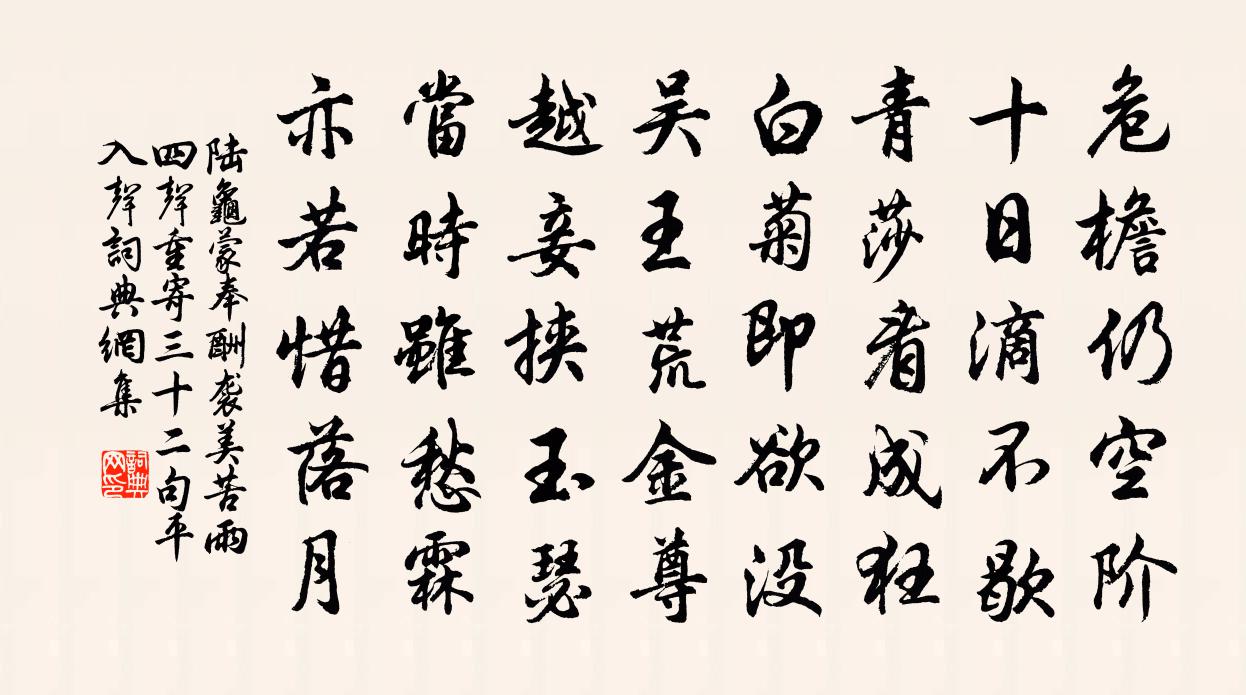 危檐仍空阶
十日滴不歇
青莎看成狂
白菊即欲没
吴王荒金尊
越妾挾玉瑟
當時雖愁霖
亦若惜落月
陆龜蒙奉酬袭美苦雨
四聲重寄三十二句平
入聲詞典網集
詞典
网印